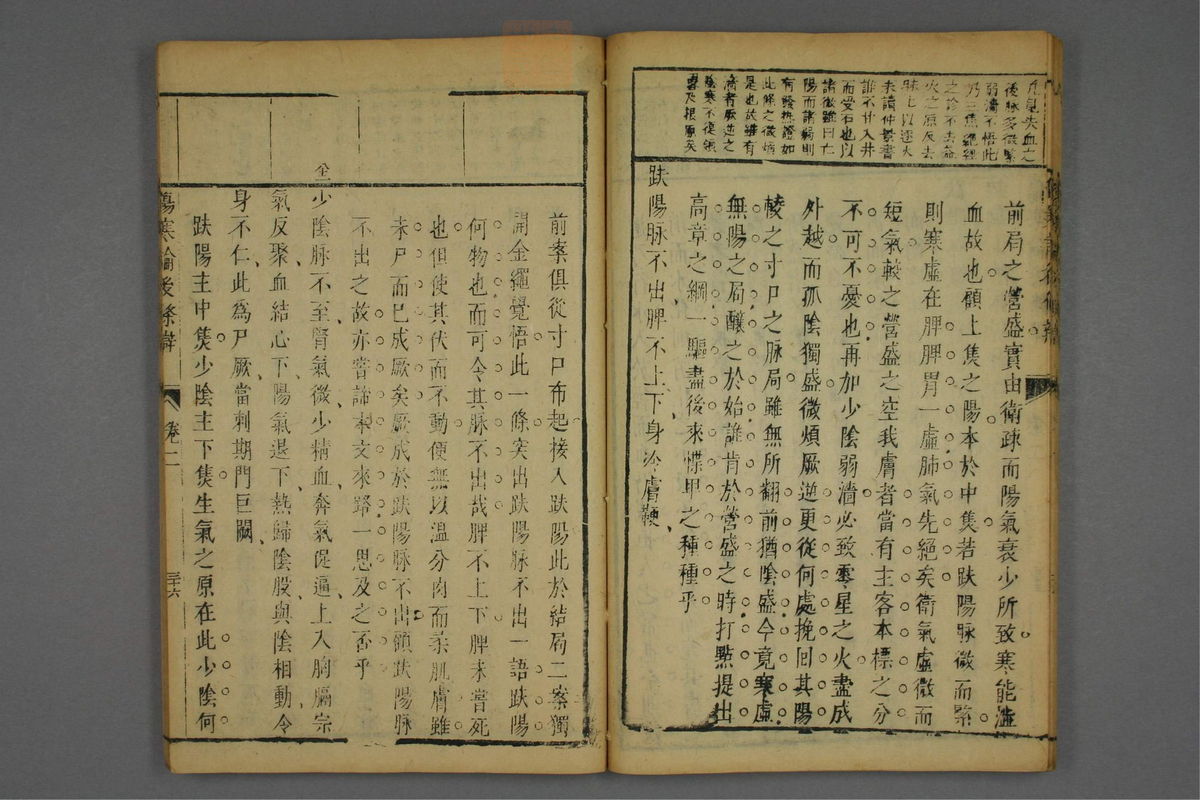 後脉多微緊
弱濇不悟此
乃三焦絕經
之診不去益
火之原反去
未讀仲景書
誰不甘入井
而受石也以
諸微雖曰亡
陽而諸弱則
有發熱證如
此條之微煩
是也故雖有
濇者厥逆之
前局之營盛實由衛疎而陽氣衰少所致寒能濇
血故也顧上焦之陽本於中焦若趺陽脉微而緊
則寒虛在脾脾胃一虛肺氣先絕矣衛氣虛微而
短氣較之營盛之空我膚者當有主客本標之分
不可不憂也再加少陰弱濇必致零星之火盡成
外越而孤陰獨盛微煩厥逆更從何處挽回其陽
較之寸口之脉局雖無所翻前猶陰盛今竟寒虛
無陽之局釀之於始誰肯於營盛之時打點提出
高章之綱一驅盡後來慄卑之種種乎
趺陽脉不出脾不上下身冷膚鞕
前案俱從寸口布起接入趺陽此於結局二案獨
開金繩覺悟此一條突出趺陽脉不出一語趺陽
何物也而可令其脉不出哉脾不上下脾未嘗死
也但使其伏而不動便無以溫分肉而柔肌膚雖
未尸而已成厥矣厥成於趺陽脉不出顧趺陽脉
不出之故亦嘗諦本文來路一思及之否乎
少陰脉不至腎氣微少精血奔氣促逼上入胸膈宗
氣反聚血結心下陽氣退下熱歸陰股與陰相動令
身不仁此爲尸厥當刺期門巨闕
趺陽主中焦少陰主下焦生氣之原在此少陰何
傷寒論後條辯
卷二
三十六